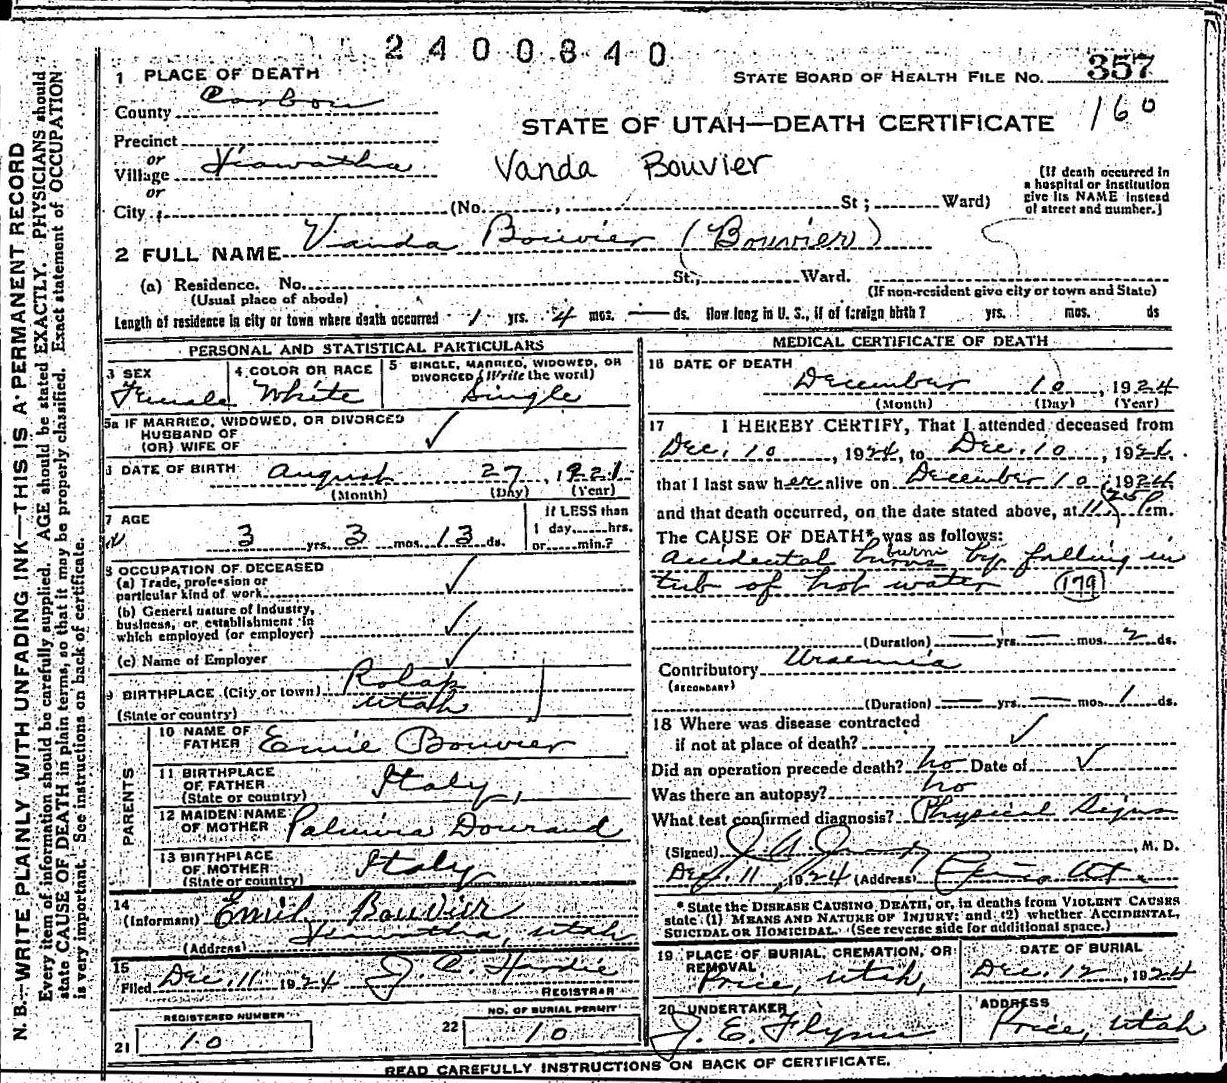 2400840
1 PLACE OF DEATH
STATE BOARD OF HEALTH FILE No. 357
County Carbon
160
STATE OF UTAH—DEATH CERTIFICATE
Precinct
or
Village Hiawatha
Vanda Bouvier
or
(If death occurred in a hospital or institution give its NAME instead of street and number.)
City (No. St; Ward)
2 FULL NAME Vanda Bouvier (Bouvier)
(a) Residence. No. St., Ward.
(Usual place of abode)
(If non-resident give city or town and State)
Length of residence in city or town where death occurred 1 yrs. 4 mos. — ds. How long in U. S., if of foreign birth? yrs. mos. ds
PERSONAL AND STATISTICAL PARTICULARS
3 SEX
Female
4 COLOR OR RACE
White
5 SINGLE, MARRIED, WIDOWED, OR DIVORCED (Write the word)
Single
5a IF MARRIED, WIDOWED, OR DIVORCED
HUSBAND OF
(OR) WIFE OF ✓
6 DATE OF BIRTH August 27, 1921
(Month) (Day) (Year)
7 AGE
3 yrs. 3 mos. 13 ds.
If LESS than
1 day hrs.
or min.?
8 OCCUPATION OF DECEASED
(a) Trade, profession or
particular kind of work ✓
(b) General nature of Industry,
business, or establishment in
which employed (or employer) ✓
(c) Name of Employer ✓
9 BIRTHPLACE (City or town) Rolapp
(State or country) Utah
PARENTS
10 NAME OF
FATHER Emie Bouvier
11 BIRTHPLACE
OF FATHER
(State or country) Italy
12 MAIDEN NAME
OF MOTHER Palmira Dourand
13 BIRTHPLACE
OF MOTHER
(State or country) Italy
14
(Informant) Emil Bouvier
(Address) Hiawatha, Utah
15
Filed Dec. 11 1924 J. C. Hardie
REGISTRAR
REGISTERED NUMBER
21 10
NO. OF BURIAL PERMIT
22 10
MEDICAL CERTIFICATE OF DEATH
16 DATE OF DEATH
December 10, 1924
(Month) (Day) (Year)
17 I HEREBY CERTIFY, That I attended deceased from
Dec. 10, 1924, to Dec. 10, 1924.
that I last saw her alive on December 10, 1924
and that death occurred, on the date stated above, at m.
The CAUSE OF DEATH* was as follows:
accidental burns burns by falling in
tub of hot water (179)
(Duration) — yrs. — mos. 2 ds.
Contributory Uraemia
(SECONDARY)
(Duration) — yrs. — mos. 1 ds.
18 Where was disease contracted
if not at place of death? ✓
Did an operation precede death? no Date of ✓
Was there an autopsy? no
What test confirmed diagnosis? Physical Signs
(Signed) , M. D.
Dec. 11, 1924 (Address)
* State the DISEASE CAUSING DEATH, or, in deaths from VIOLENT CAUSES
state (1) MEANS AND NATURE OF INJURY; and (2) whether ACCIDENTAL,
SUICIDAL OR HOMICIDAL. (See reverse side for additional space.)
19 PLACE OF BURIAL, CREMATION, OR
REMOVAL
Price, Utah,
DATE OF BURIAL
Dec. 12, 1924
20 UNDERTAKER
J. E. Flynn
ADDRESS
Price, Utah
READ CAREFULLY INSTRUCTIONS ON BACK OF CERTIFICATE.
N. B.—WRITE PLAINLY WITH UNFADING INK—THIS IS A PERMANENT RECORD
Every item of information should be carefully supplied. AGE should be stated EXACTLY. PHYSICIANS should
state CAUSE OF DEATH in plain terms, so that it may be properly classified. Exact statement of OCCUPATION
is very important. See instructions on back of certificate.